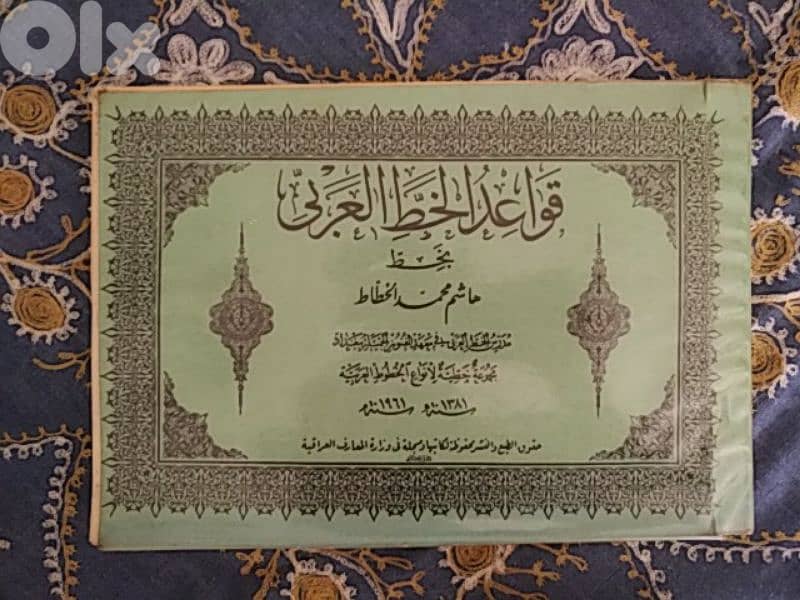 OLX
قَوَاعِدُ الخَطِّ العَرَبيّ
بِخَطِّ
هاشم محمد الخطّاط
مدرس الخط العربي في معهد الفنون الجميلة ببغداد
مجموعة خطية لأنواع الخطوط العربية
سنة ١٣٨١ه سنة ١٩٦١م
حقوق الطبع والنشر محفوظة لكاتبها ومسجلة في وزارة المعارف العراقية